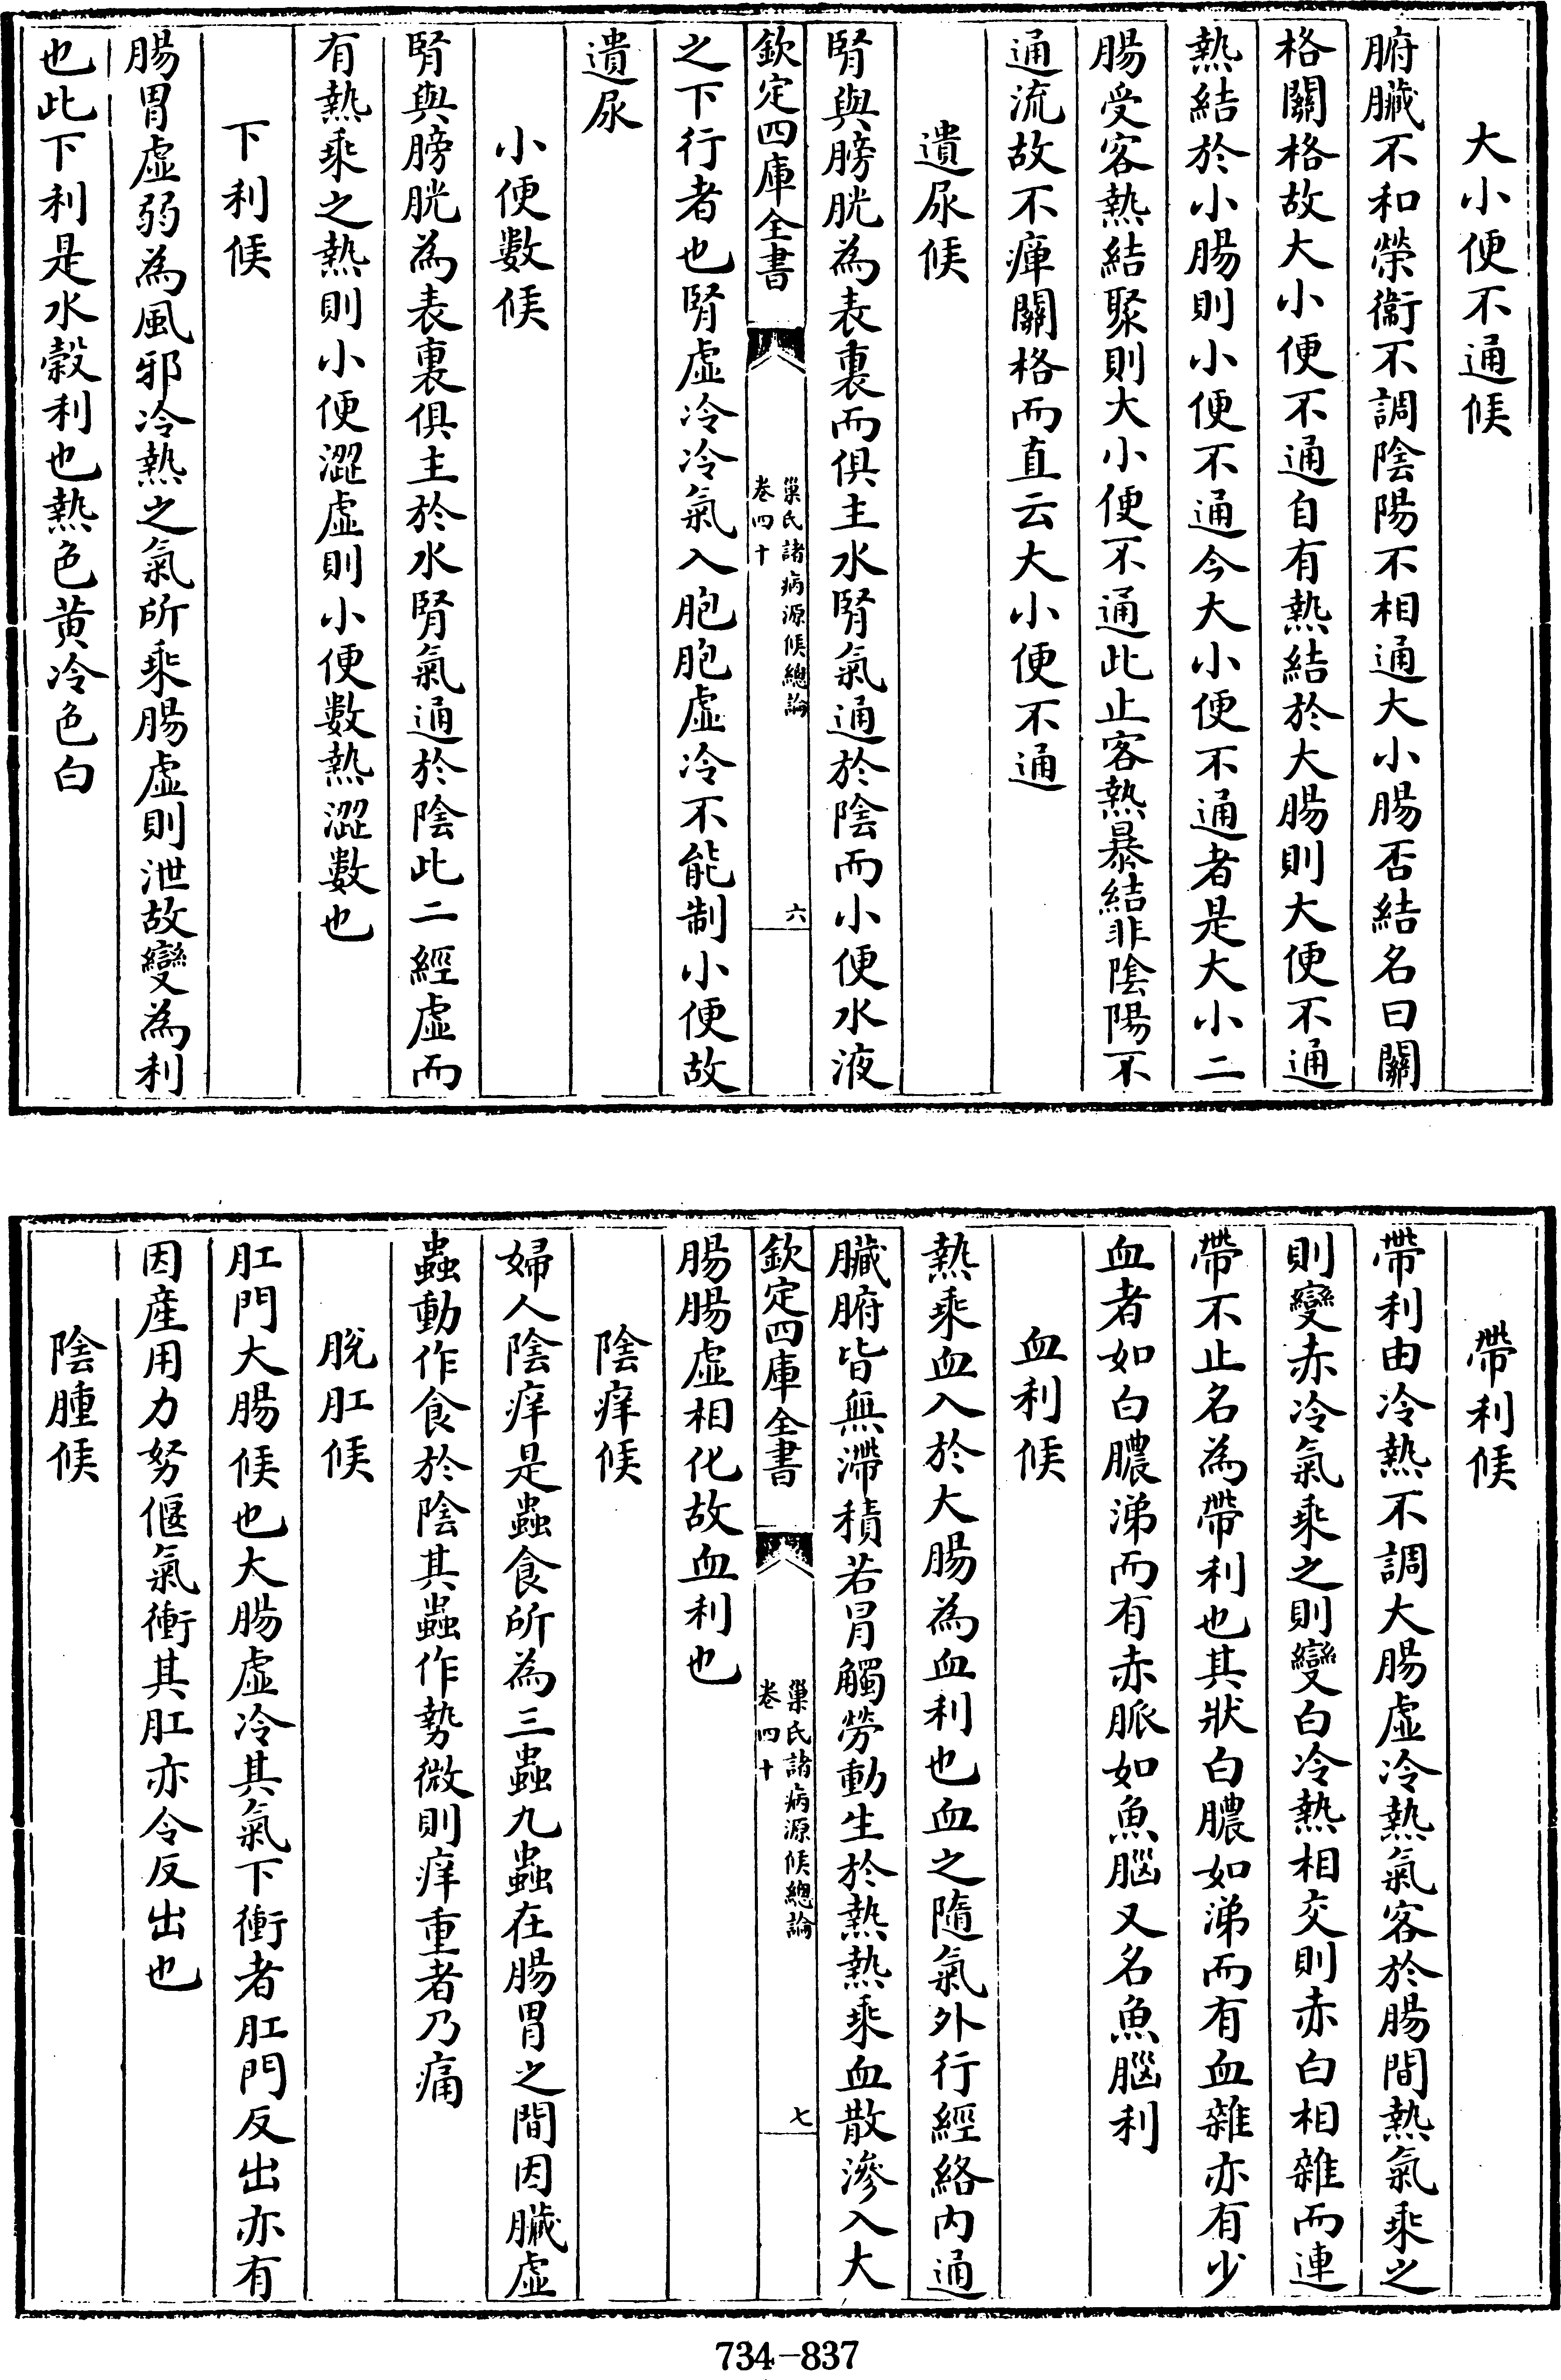 大小便不通候
腑臟不和榮衞不調陰陽不相通大小腸否結名曰關
格關格故大小便不通自有熱結於大腸則大便不通
熱結於小腸則小便不通今大小便不通者是大小二
腸受客熱結聚則大小便不通此止客熱暴結非陰陽不
通流故不痺關格而直云大小便不通
遺尿候
腎與膀胱為表裏而俱主水腎氣通於陰而小便水液
欽定四庫全書
巢氏諸病源候總論
卷四十
六
之下行者也腎虛冷冷氣入胞胞虛冷不能制小便故
遺尿
小便數候
腎與膀胱為表裏俱主於水腎氣通於陰此二經虛而
有熱乘之熱則小便澀虛則小便數熱澀數也
下利候
腸胃虛弱為風邪冷熱之氣所乘腸虛則泄故變為利
也此下利是水穀利也熱色黃冷色白
帶利候
帶利由冷熱不調大腸虛冷熱氣客於腸間熱氣乘之
則變赤冷氣乘之則變白冷熱相交則赤白相雜而連
帶不止名為帶利也其狀白膿如涕而有血雜亦有少
血者如白膿涕而有赤脈如魚腦又名魚腦利
血利候
熱乘血入於大腸為血利也血之隨氣外行經絡內通
臟腑皆無滯積若冒觸勞動生於熱熱乘血散滲入大
欽定四庫全書
巢氏諸病源候總論
卷四十
七
腸腸虛相化故血利也
陰痒候
婦人陰痒是蟲食所為三蟲九蟲在腸胃之間因臟虛
蟲動作食於陰其蟲作勢微則痒重者乃痛
脫肛候
肛門大腸候也大腸虛冷其氣下衝者肛門反出亦有
因產用力努偃氣衝其肛亦令反出也
陰腫候
734-837